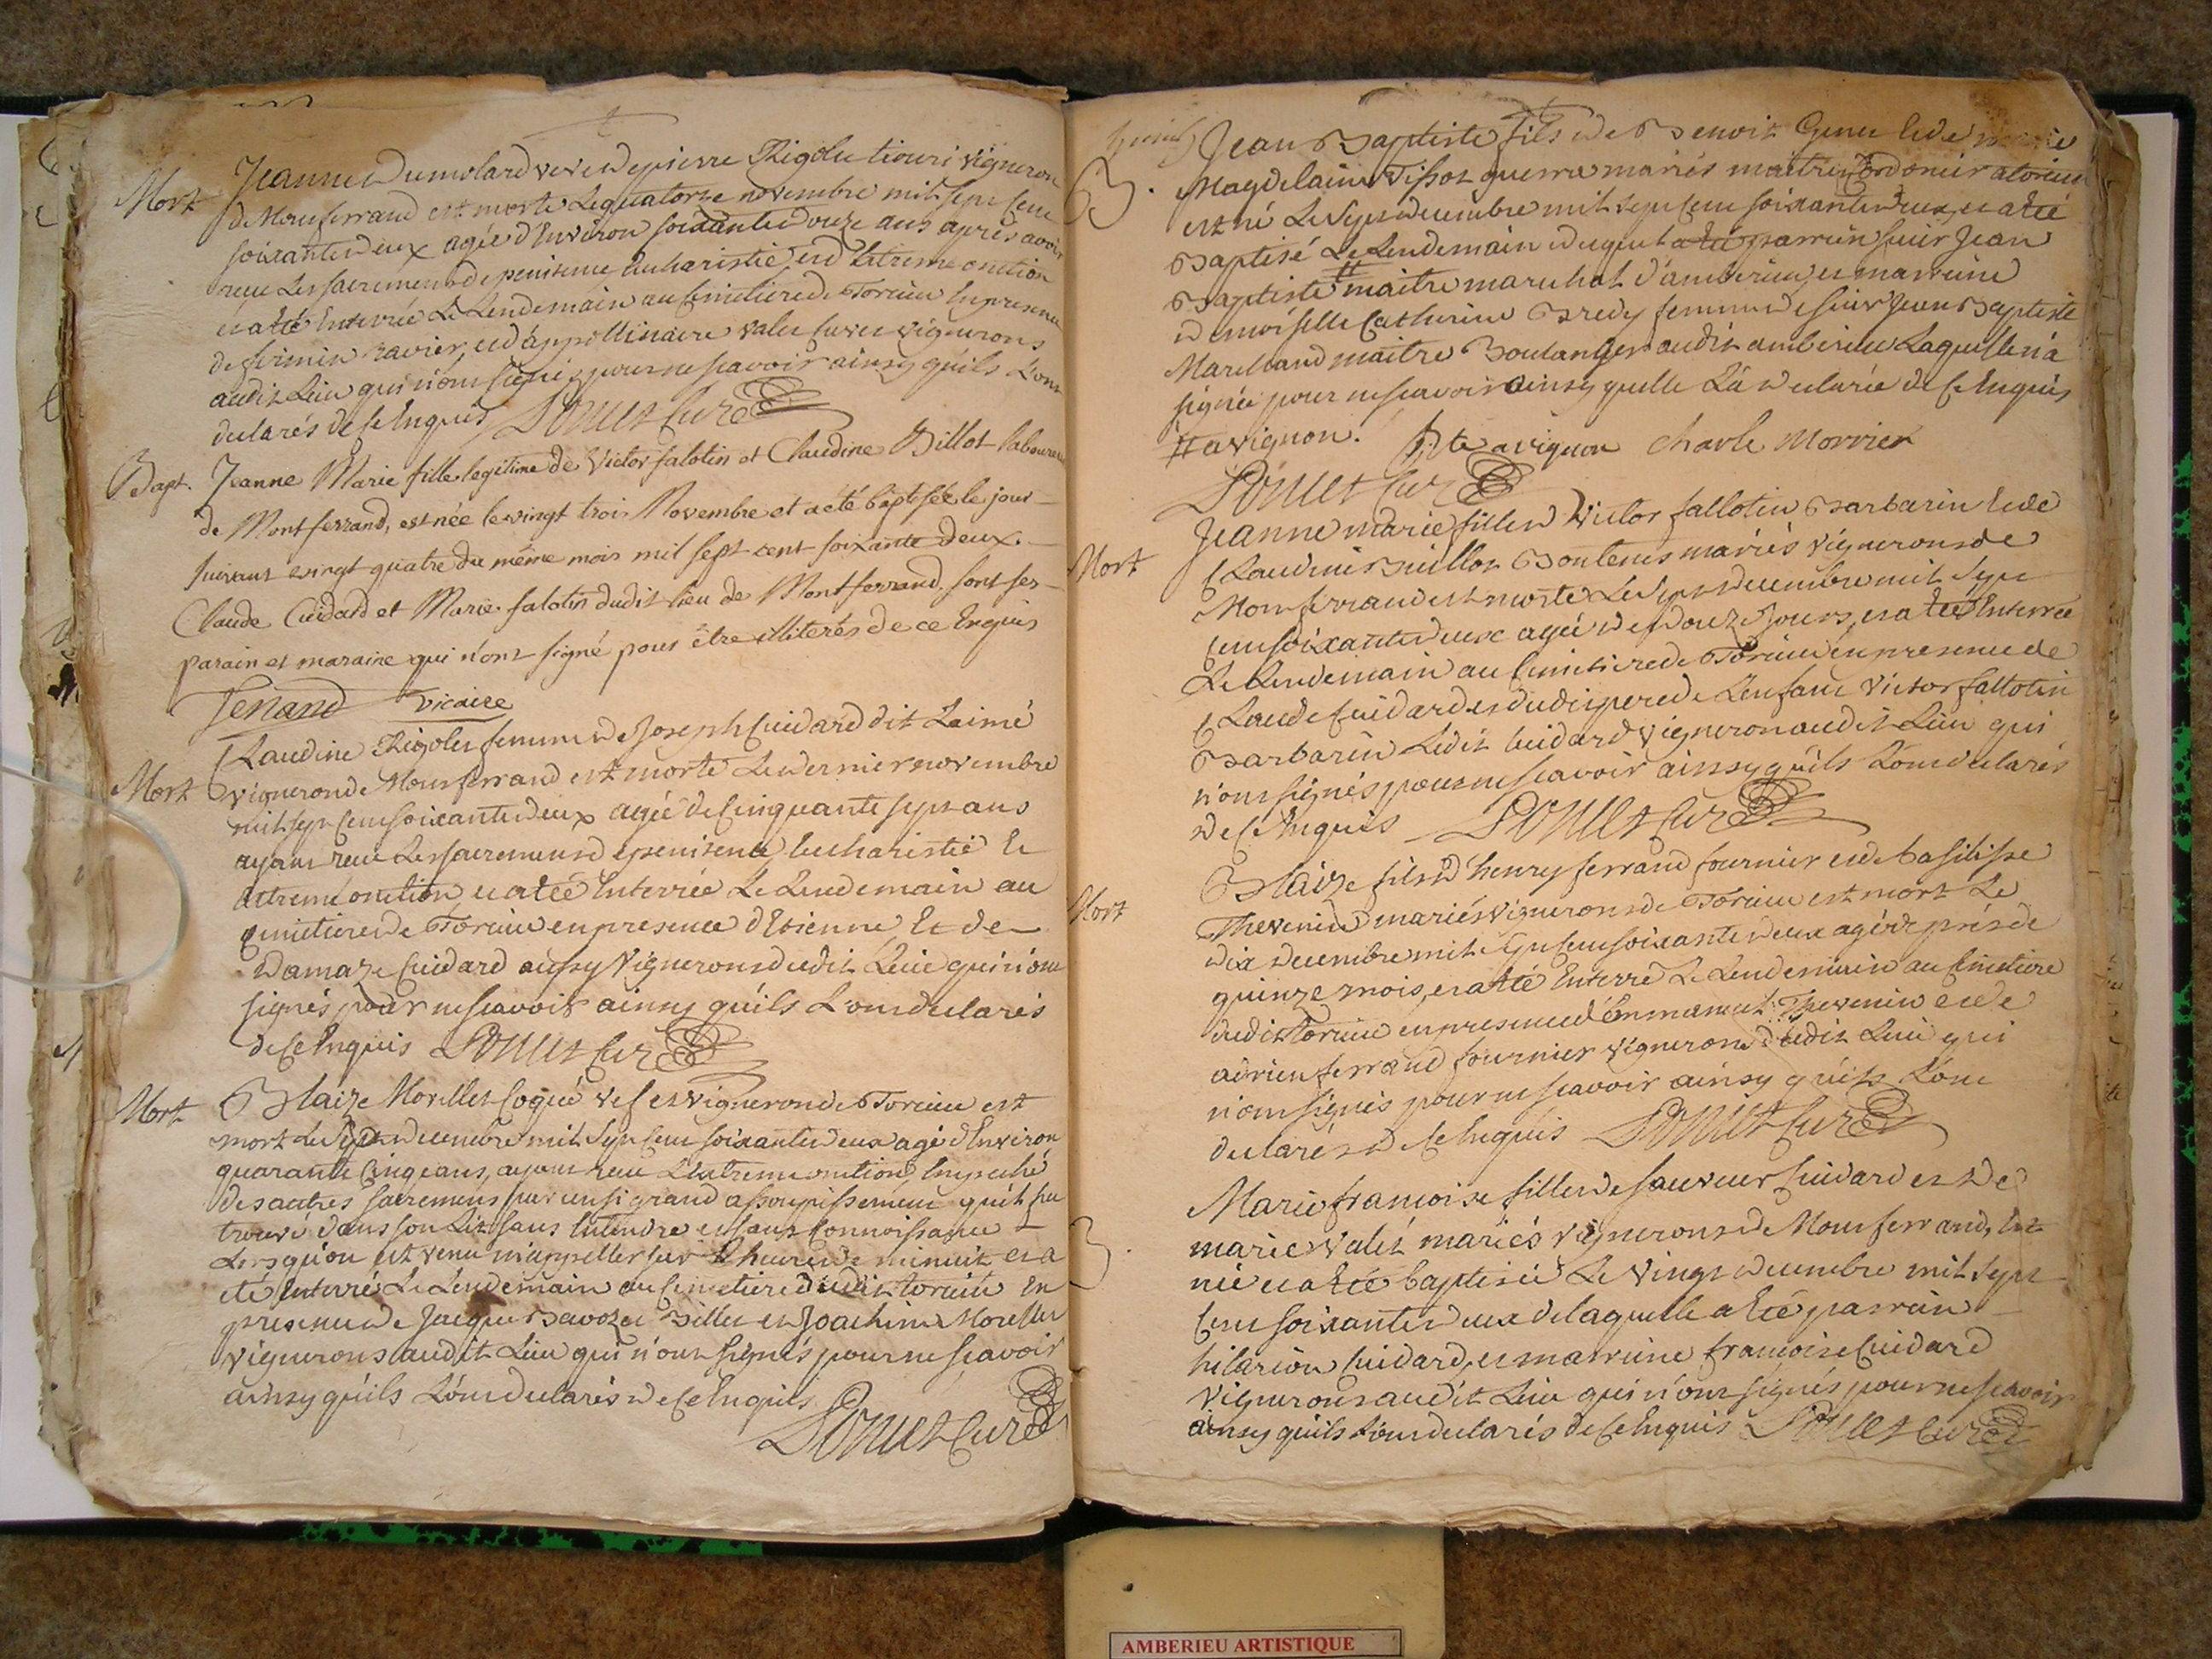 Mort
Jeanne Dumolard veve de pierre Rigolet tiouri vigneron
de Monferrand est morte Le quatorze novembre mil sept cent
soixante deux agée d'Environ soixante douze ans après avoir
reçu Les sacremens de penitence Eucharistie, et d'Extreme onction
et a été Enterrée Le Lendemain au Cimetiere de Torcieu En presence
de firmin ravier, et d'appollinaire valet Cuves vignerons
audit Lieu qui n'ont signés pour ne scavoir ainsy qu'ils L'ont
declarés de Ce Enquis Poncet Curé
Bapt.
Jeanne Marie fille legitime de Victor falotin et Claudine Billot laboureurs
de Montferrand, est née le vingt trois Novembre et a été baptisée le jour
suivant vingt quatre du même mois mil sept cent soixante deux.
Claude Cuidard et Marie falotin dudit lieu de Montferrand sont ses
parain et maraine qui n'ont signé pour être illiterés de ce Enquis
vicaire
Mort
Claudine Rigolet femme de Joseph Cuidard dit Laimé
vigneron de Monferrand est morte Le dernier novembre
mil sept cent soixante deux agée de Cinquante sept ans
ayant recu Les sacremens de penitence Eucharistie Et
Extreme onction, et a été Enterrée Le Lendemain au
Cimetiere de Torcieu en presence d'Etienne Et de
damaze Cuidard aussy vignerons dudit Lieu qui n'ont
signés pour ne scavoir ainsy qu'ils L'ont declarés
de Ce Enquis Poncet Curé
Mort
Blaize Morellet Coqué vef et vigneron de Torcieu est
mort Le Sept decembre mil sept cent soixante deux agé d'Environ
quarante Cinq ans, ayant recu L'extreme onction, Empeché
des autres sacremens par un si grand assoupissement qu'il fu
trouvé dans son Lit sans Entendre et sans Connoissance
Lorsqu'on est venu m'appeller sur L'heure de minuit et a
été Enterré Le Lendemain au Cimetiere dudit torcieu En
presence de Jacque Savoze Billet et Joachim Morellet
vignerons audit Lieu qui n'ont signés pour ne scavoir
ainsy qu'ils L'ont declarés de Ce Enquis
Poncet Curé
B.
Jean Baptiste fils de Benoit Genet Et de marie
Magdelaine Tissot guerre mariés maitre Cordonier a torcieu
est né Le Sept decembre mil sept cent soixante deux, et a été
Baptisé Le Lendemain duquel a été parrein sieur Jean
Baptiste # maitre marechal d'amberieu, et marreine
demoiselle Catherine Bredy femme de sieur Jean Baptiste
Marchand maitre Boulanger audit amberieu Laquelle n'a
signée pour ne scavoir ainsy quelle L'a declarée de Ce Enquis
# avignon. Bte avignon charle Morrier
Poncet Curé
Mort
Jeanne marie fille de Victor fallotin Barbarin Et de
Claudine Billot Bontems mariés vignerons de
Monferrand est morte Le Sept decembre mil sept
cent soixante deux agée de douze Jours, et a été Enterrée
Le Lendemain au Cimetiere de Torcieu en presence de
Claude Cuidard et dudit pere de L'enfant Victor fallotin
Barbarin Ledit Cuidard vigneron audit Lieu qui
n'ont signés pour ne scavoir ainsy qu'ils L'ont declarés
de Ce Enquis Poncet Curé
Mort
Blaize fils d'henry ferrand fournier et de basilisse
Thevenin mariés vignerons de Torcieu est mort Le
dix decembre mil sept cent soixante deux agé de près de
quinze mois, et a été Enterré Le Lendemain au Cimetiere
dudit torcieu en presence d'Emmanuel Thevenin et de
adrien ferrand fournier vignerons dudit Lieu qui
n'ont signés pour ne scavoir ainsy qu'ils L'ont
declarés de Ce Enquis Poncet Curé
B.
Marie francoise fille de sauveur Cuidard et de
marie valet mariés vignerons de Monferrand, Est
née et a été baptisée Le vingt decembre mil sept
cent soixante deux de laquelle a été parrein
hilarion Cuidard, et marreine francoise Cuidard
vignerons audit Lieu qui n'ont signés pour ne scavoir
ainsy qu'ils L'ont declarés de Ce Enquis Poncet Curé
AMBERIEU ARTISTIQUE